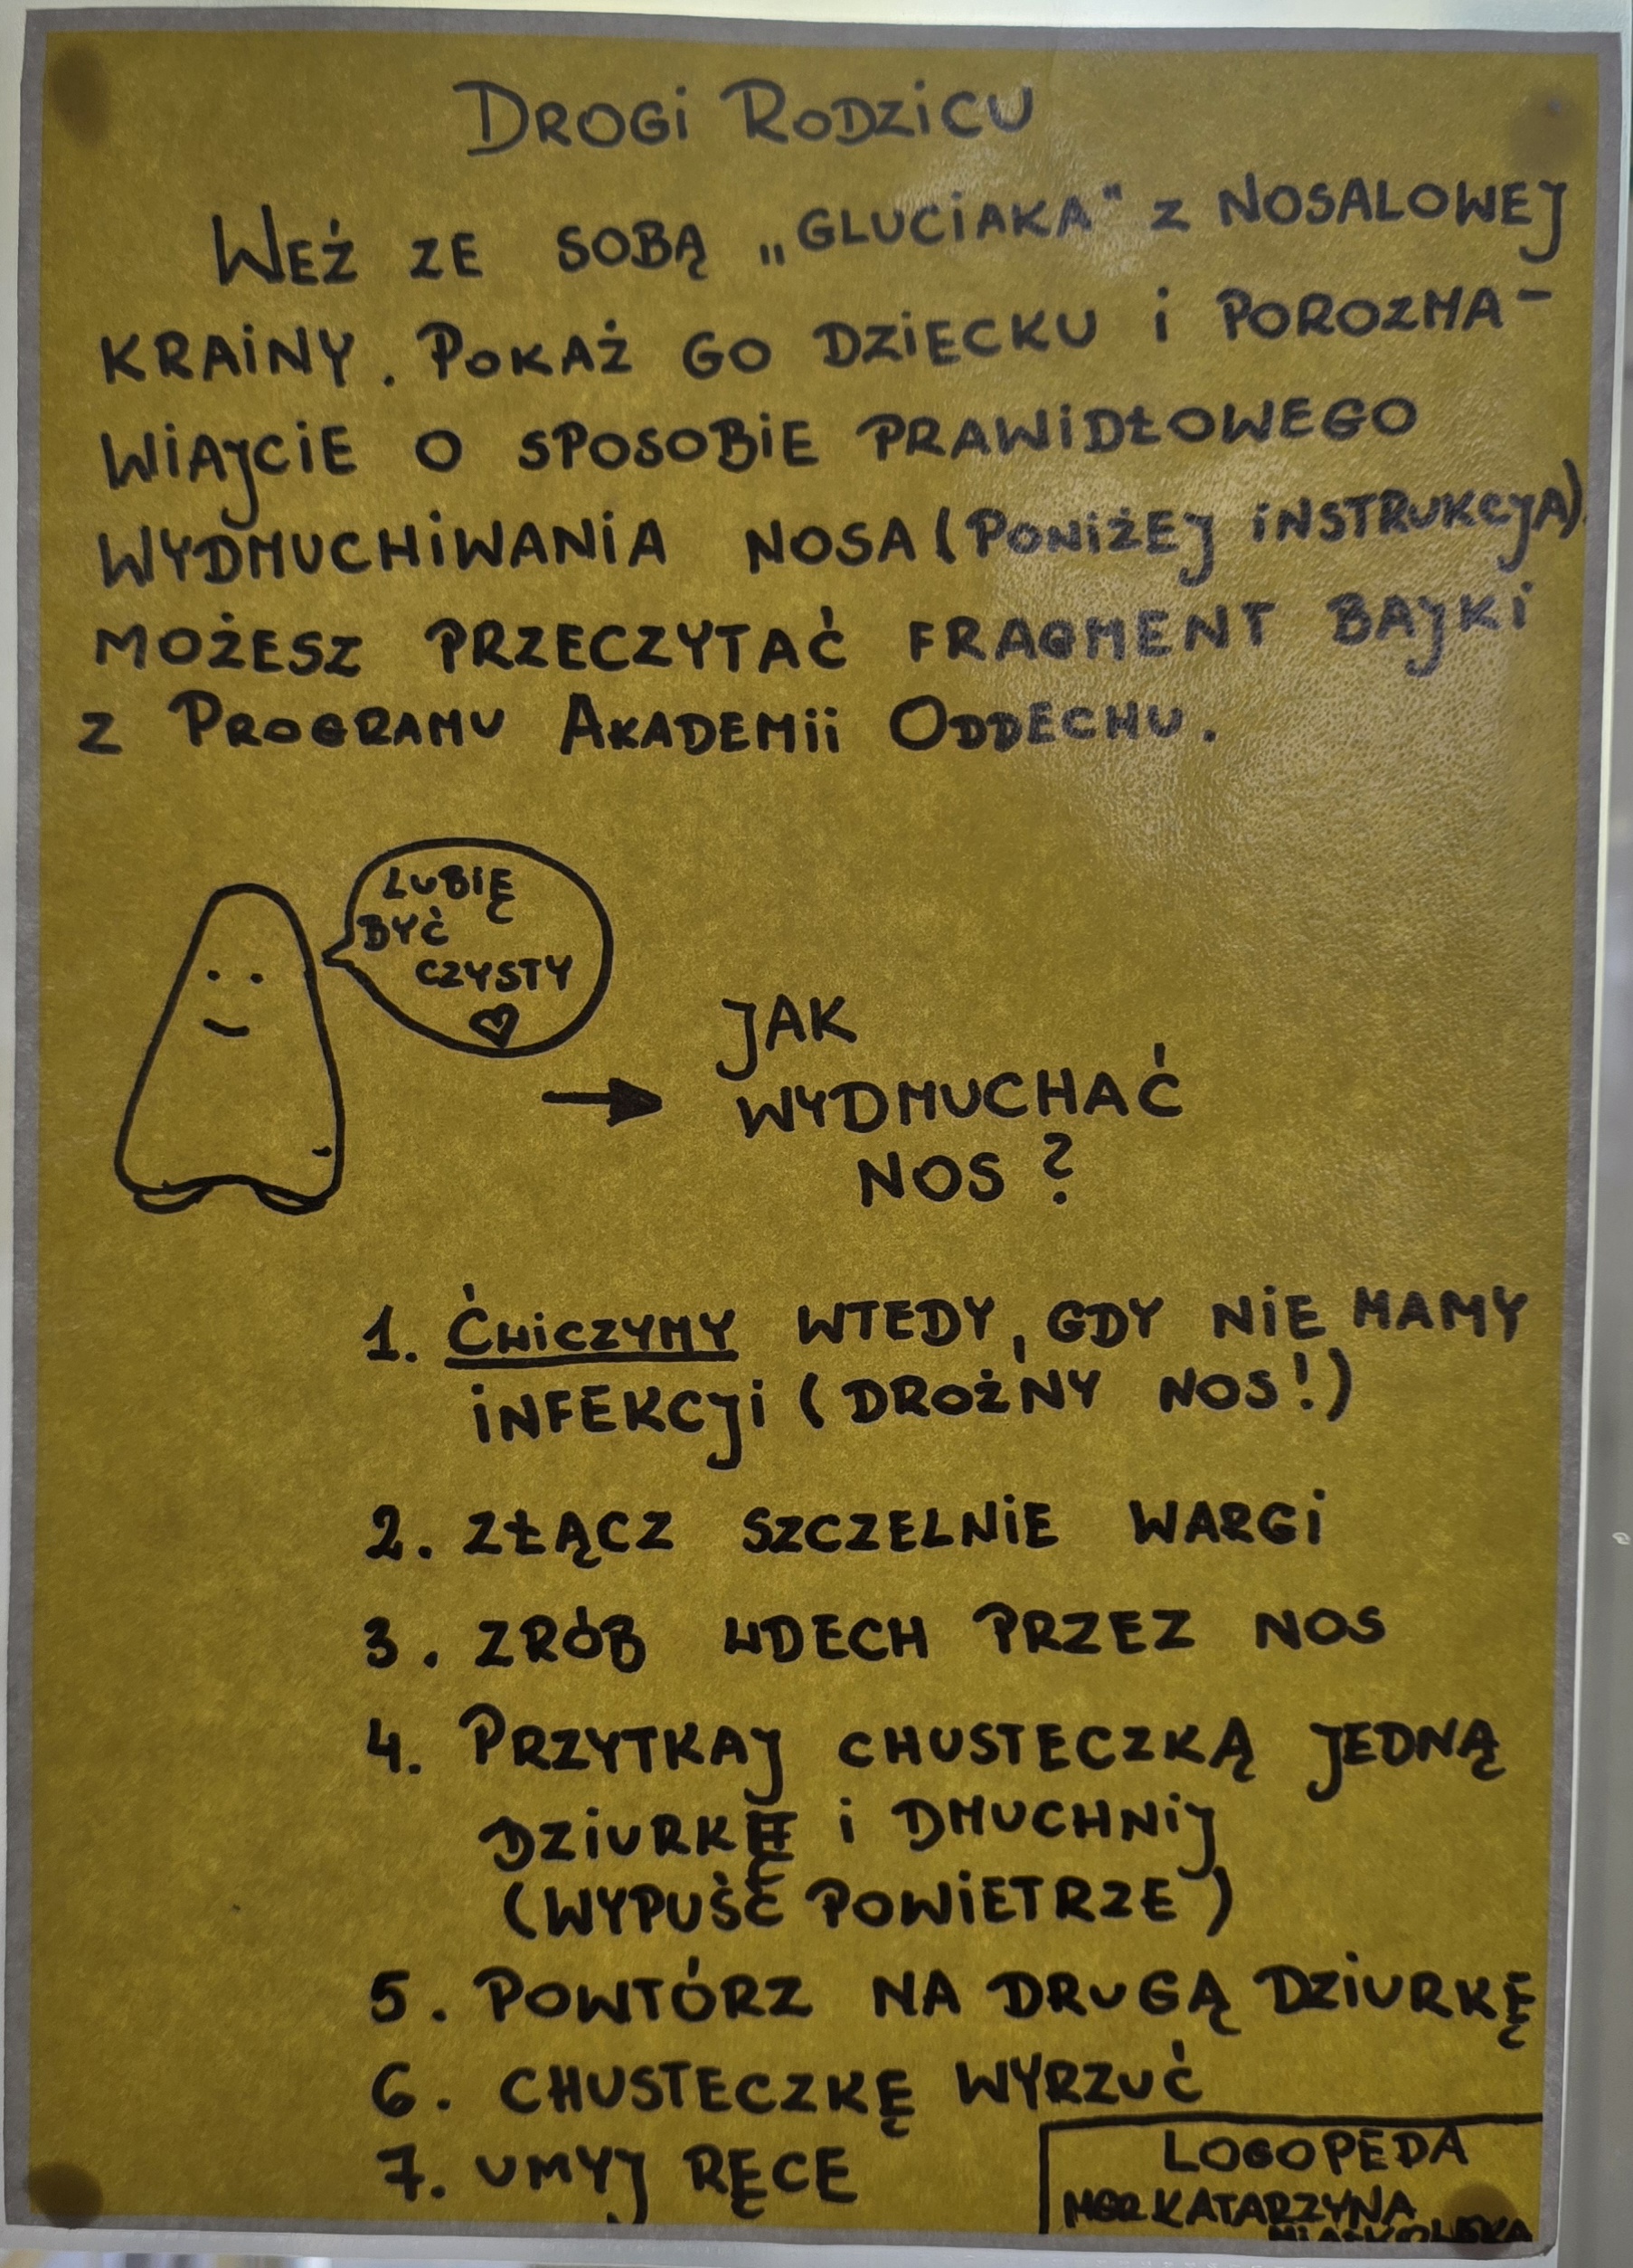 DROGI RODZICU
WEŹ ZE SOBĄ „GLUCIAKA" Z NOSALOWEJ
KRAINY. POKAŻ GO DZIECKU I POROZMA-
WIAJCIE O SPOSOBIE PRAWIDŁOWEGO
WYDMUCHIWANIA NOSA (PONIŻEJ INSTRUKCJA).
MOŻESZ PRZECZYTAĆ FRAGMENT BAJKI
Z PROGRAMU AKADEMII ODDECHU.
LUBIĘ
BYĆ
CZYSTY
♡
→ JAK
WYDMUCHAĆ
NOS?
1. ĆWICZYMY WTEDY, GDY NIE MAMY
INFEKCJI (DROŻNY NOS!)
2. ZŁĄCZ SZCZELNIE WARGI
3. ZRÓB WDECH PRZEZ NOS
4. PRZYTKAJ CHUSTECZKĄ JEDNĄ
DZIURKĘ I DMUCHNIJ
(WYPUŚĆ POWIETRZE)
5. POWTÓRZ NA DRUGĄ DZIURKĘ
6. CHUSTECZKĘ WYRZUĆ
7. UMYJ RĘCE
LOGOPEDA
MGR KATARZYNA